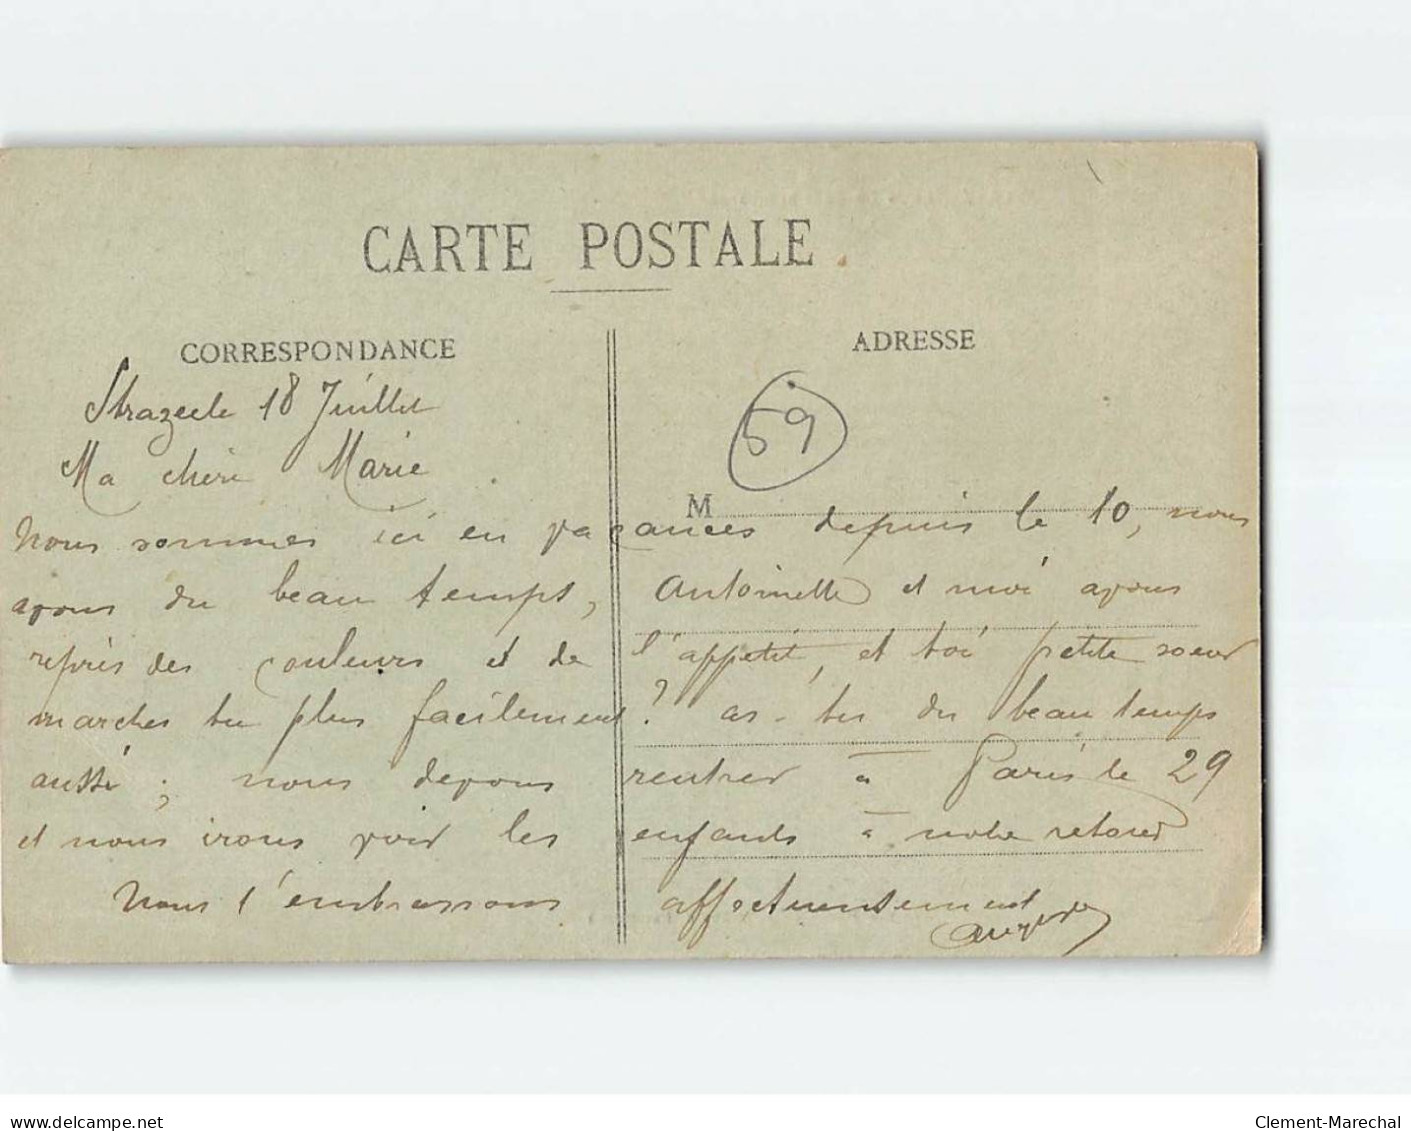 CARTE POSTALE
CORRESPONDANCE
ADRESSE
Strazeele 18 Juillet
59
Ma chère Marie
M
Nous sommes ici en vacances depuis le 10, nous
avons du beau temps, Antoinette et moi avons
repris des couleurs et de l'appétit, et toi petite soeur
marches tu plus facilement ? as-tu du beau temps
aussi ; nous devons rentrer à Paris le 29
et nous irons voir les enfants à notre retour
Nous t'embrassons affectueusement
www.delcampe.net
Clement-Marechal